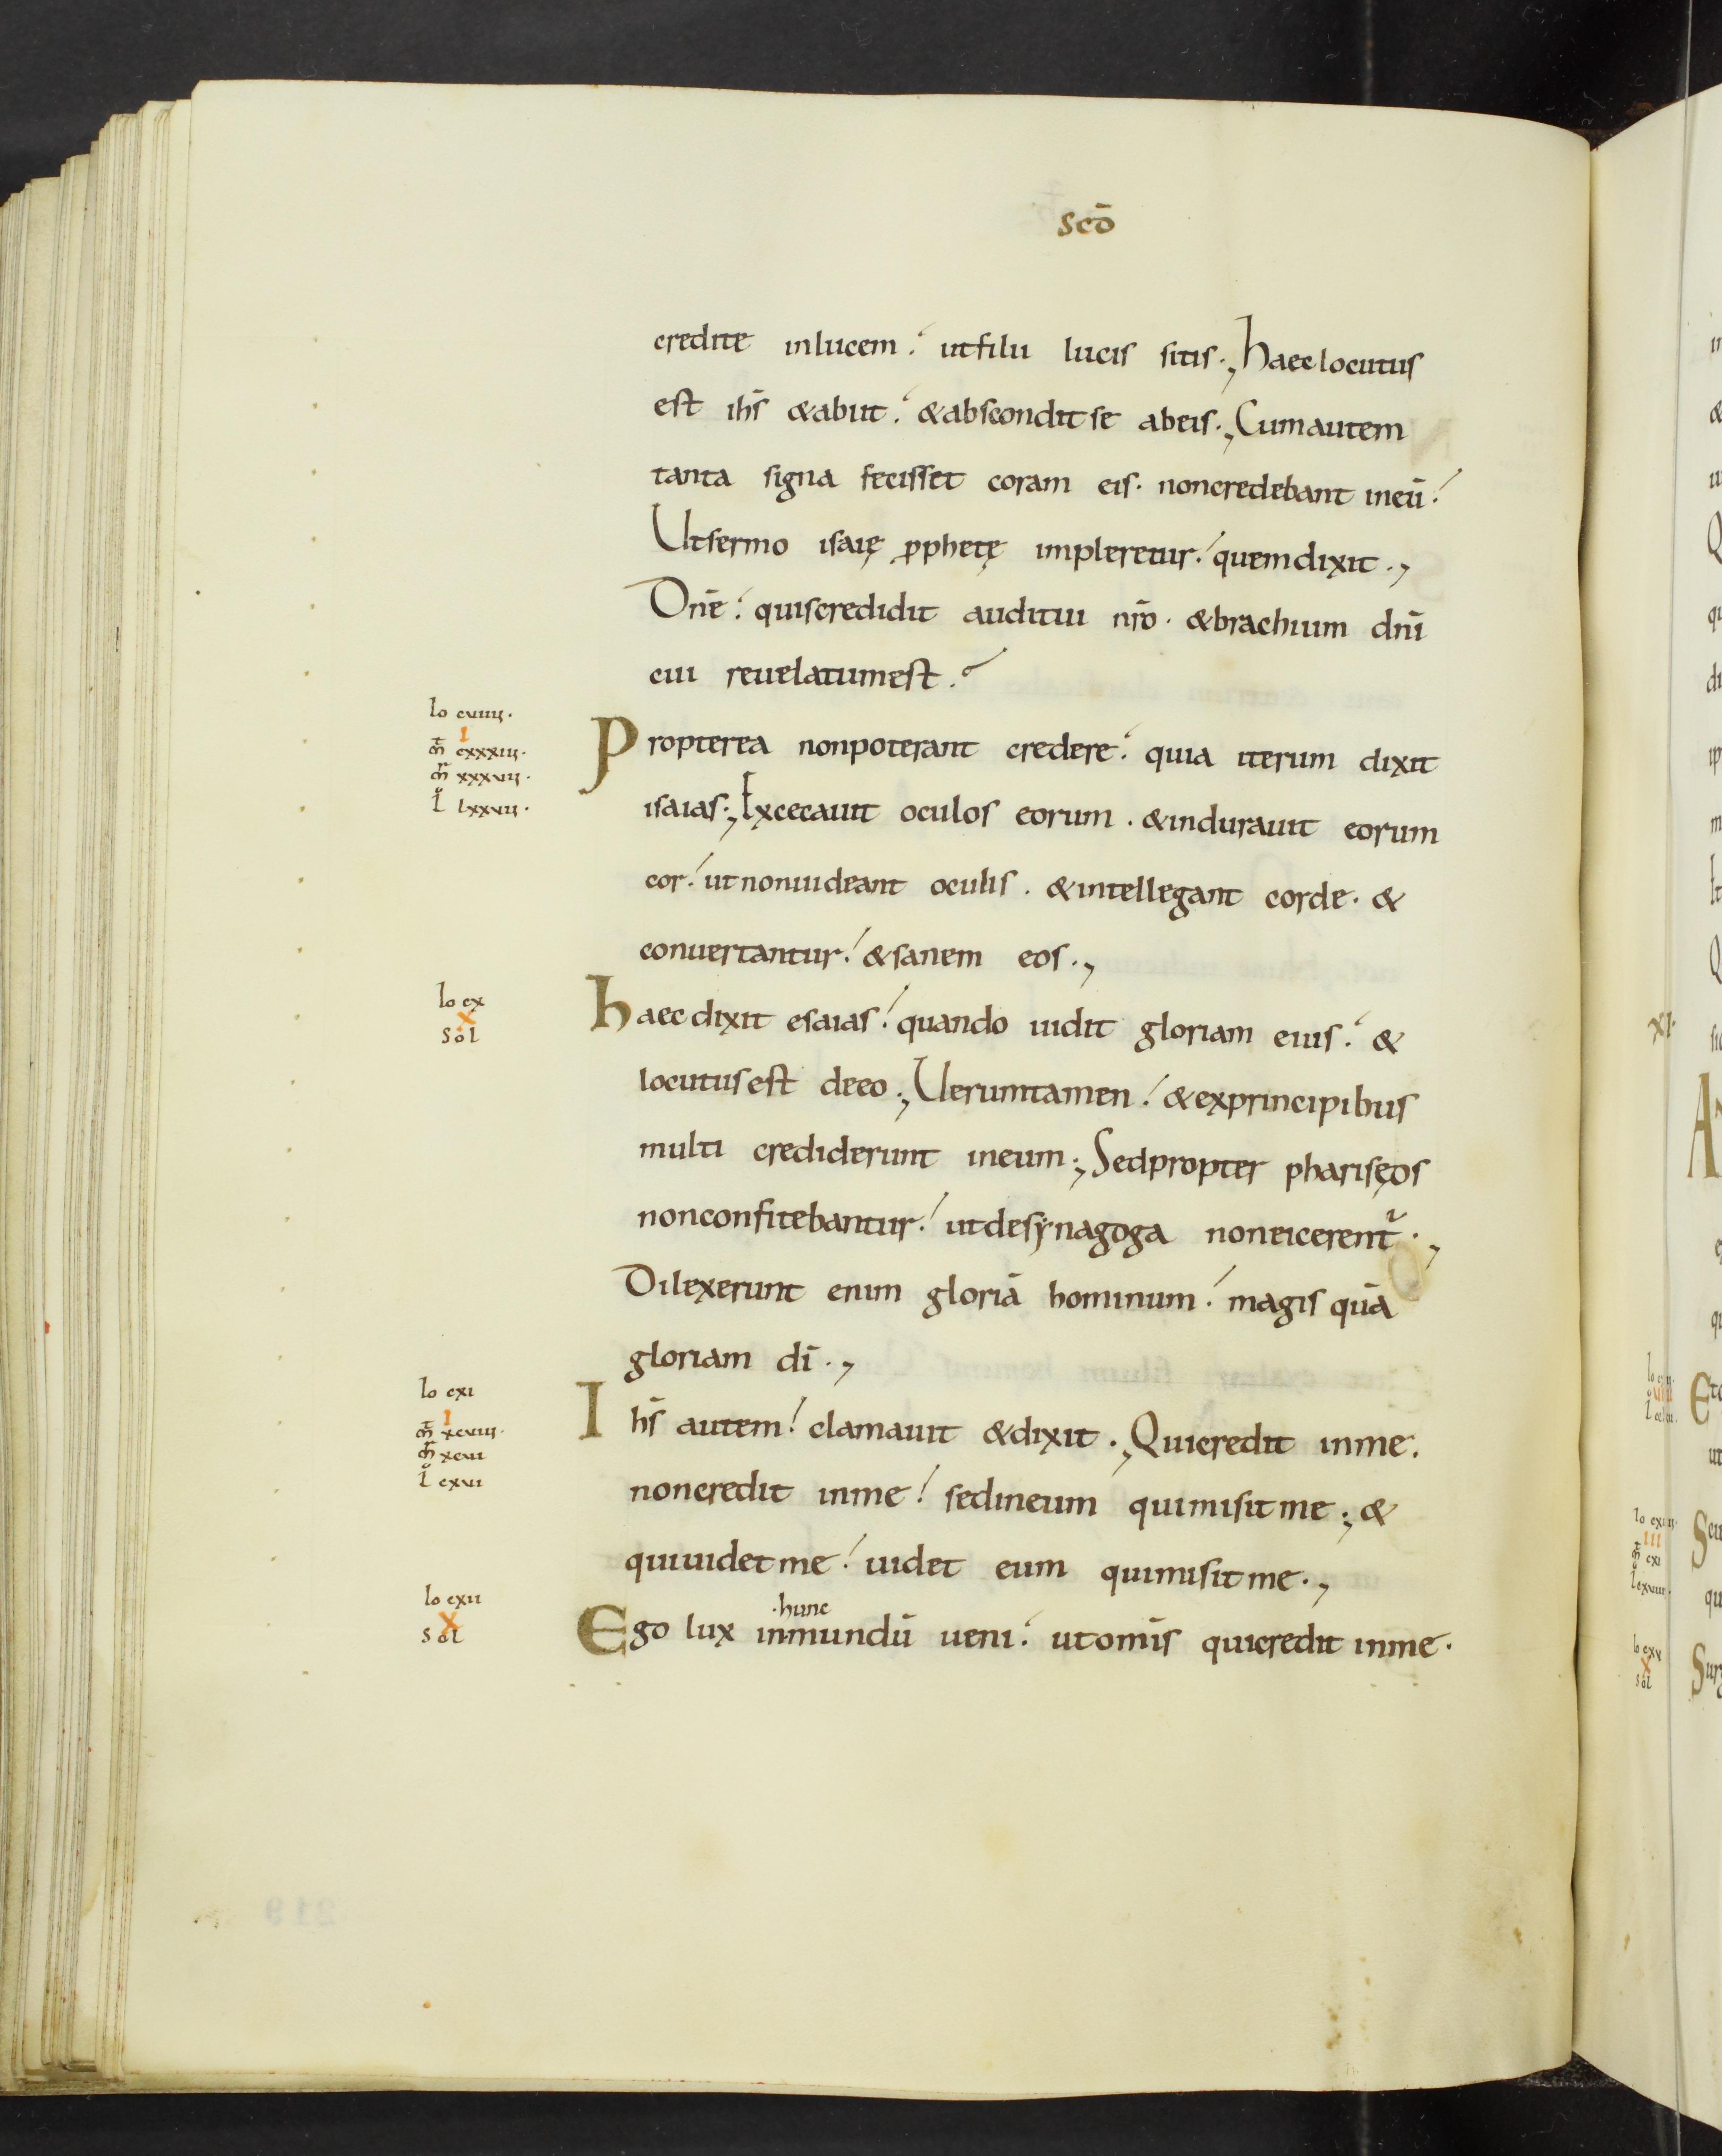 scō
credite inlucem. utfilii lucis sitis. Haec locutus
est ihs̄ & abiit. & abscondit se abeis. Cum autem
tanta signa fecisset coram eis. noncredebant ineū.
Utsermo isaię ꝓphetę impleretur. quem dixit.
Dn̄e. quiscredidit auditui nr̄o. & brachium dn̄i
cui reuelatumest.
Io cuiiii.
I
m̄ cxxxiii.
m̄ xxxuii.
l lxxuii.
Propterea nonpoterant credere. quia iterum dixit
isaias. Excecauit oculos eorum. & indurauit eorum
cor. ut nonuideant oculis. & intellegant corde. &
conuertantur. & sanem eos.
Io cx
X
sol
Haec dixit esaias. quando uidit gloriam eius. &
locutusest deeo. Uerumtamen. & exprincipibus
multi crediderunt ineum. Sedpropter pharisęos
nonconfitebantur. utdesynagoga noneicerent̄.
Dilexerunt enim gloriā hominum. magis quā
gloriam dī.
Io cxi
I
m̄ xcuiii.
m̄ xcui
l cxui
Ihs̄ autem. clamauit & dixit. Quicredit inme.
noncredit inme. sedineum quimisit me. &
quiuidet me. uidet eum quimisit me.
Io cxii
X
sol
·hunc
Ego lux inmundū ueni. utomīs quicredit inme.